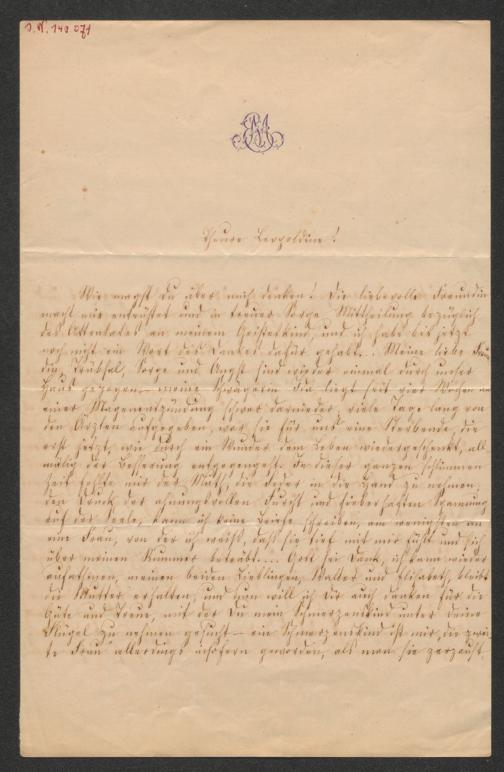 I.N. 149.071
Theure Leopoldine!
Wie magst Du über mich denken! Die liebevolle Freundin
macht mir entrüstet und in treuer Sorge Mittheilung bezüglich
des Attentates an meinem Geisteskind, und ich habe bis jetzt
noch nicht ein Wort des Dankes dafür gehabt... Meine liebe
Trübsal, Sorge und Angst sind wieder einmal durch unser
Haus gezogen – meine Schwägerin Ida liegt seit vier Wochen an
einer Magenentzündung schwer darnieder, viele Tage lang von
den Ärzten aufgegeben, war sie für uns eine Sterbende, die
erst jetzt, wie durch ein Wunder dem Leben wiedergeschenkt, all-
mälig der Besserung entgegengeht. In dieser ganzen schlimmen
Zeit fehlte mir der Muth, die Feder in die Hand zu nehmen,
den Druck der ahnungsvollen Furcht und fieberhaften Spannung
auf der Seele, kann ich keine Briefe schreiben, am wenigsten an
eine Frau, von der ich weiß, daß sie tief mit mir fühlt und sich
über meinen Kummer betrübt.... Gott sei Dank, ich kann wieder
aufathmen, meinen beiden Lieblingen, Walter und Elisabeth, bleibt
die Mutter erhalten, und nun will ich Dir auch danken für die
Güte und Treue, mit der Du mein Schmerzenskind unter Deine
Flügel zu nehmen gesucht – ein Schmerzenskind ist mir „die zwei-
te Frau" allerdings insofern geworden, als man sie zerzaust,